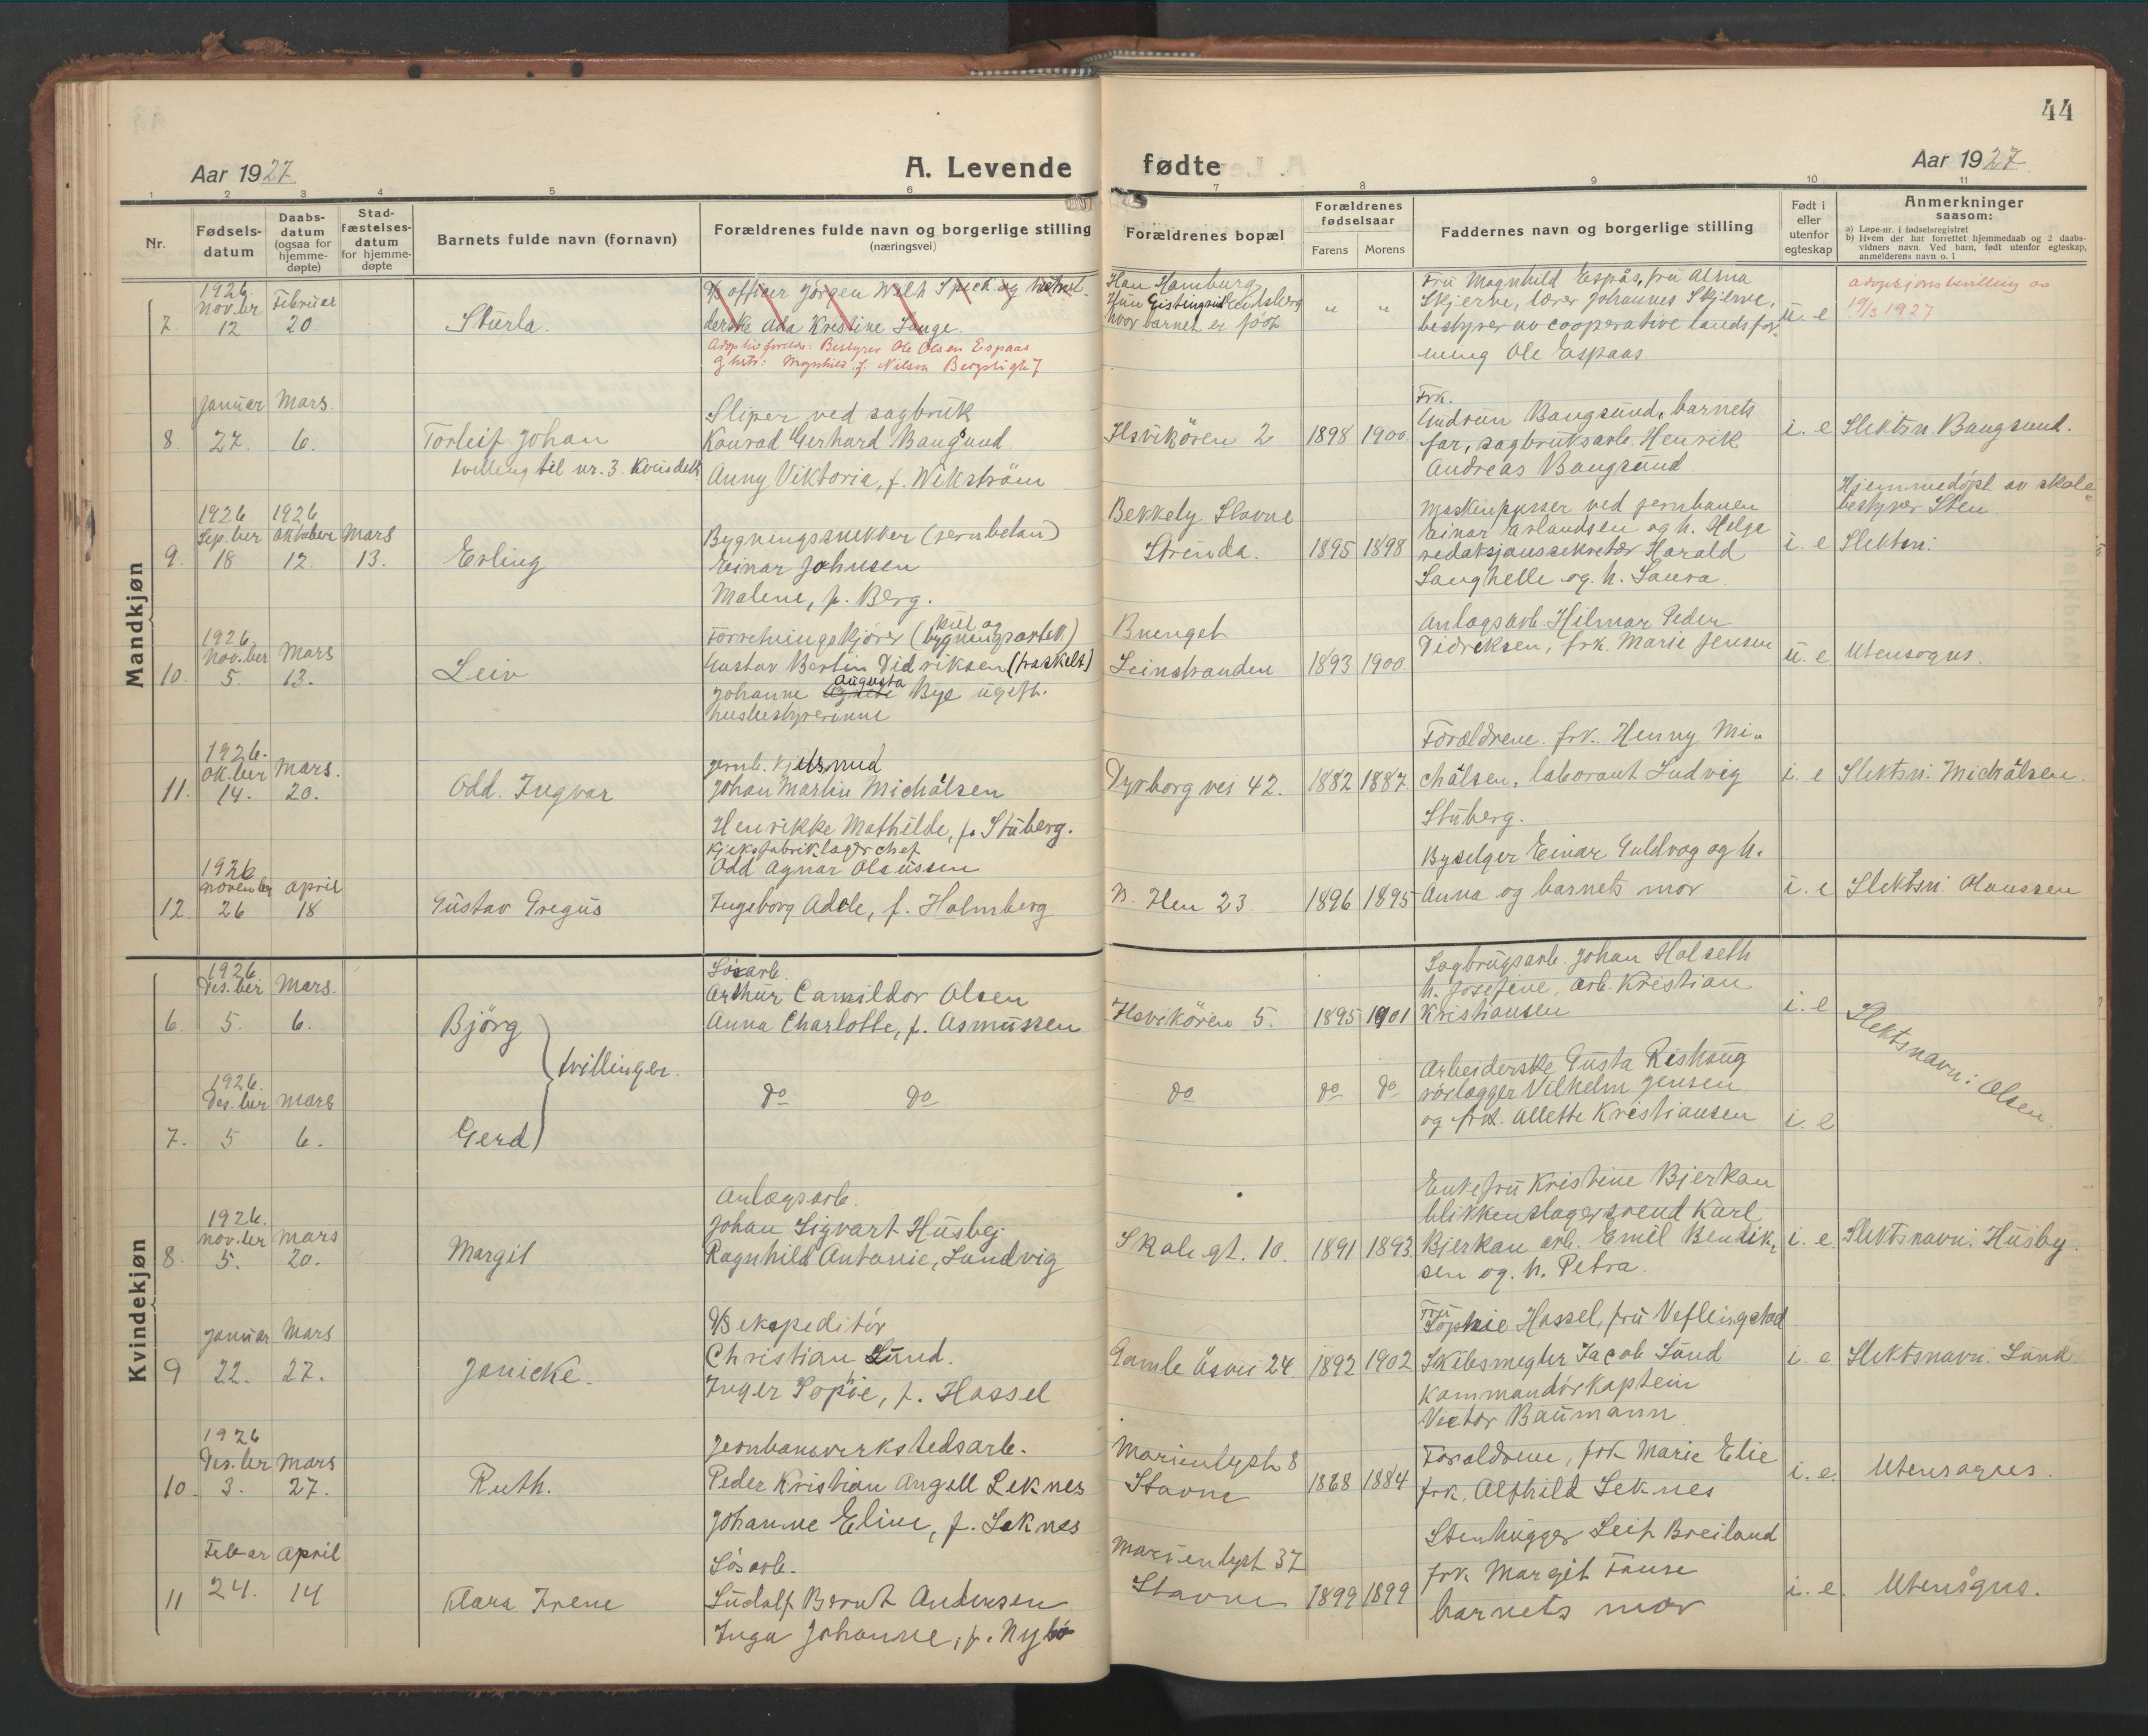 44
Aar 1927
A. Levende
fødte
Aar 1927
1 2 3 4 5 6 7 8 9 10 11
Nr.
Fødsels-
datum
Daabs-
datum
(ogsaa for
hjemme-
døpte)
Stad-
fæstelses-
datum
for hjemme-
døpte
Barnets fulde navn (fornavn)
Forældrenes fulde navn og borgerlige stilling
(næringsvei)
Forældrenes bopæl
Forældrenes
fødselsaar
Farens Morens
Faddernes navn og borgerlige stilling
Født i
eller
utenfor
egteskap
Anmerkninger
saasom:
a) Løpe-nr. i fødselsregistret
b) Hvem der har forrettet hjemmedaab og 2 daabs-
vidners navn. Ved barn, født utenfor egteskap,
anmelderens navn o. l
Mandkjøn
7.
1926
Nov.ber
12
Februar
20.
Sturla.
officer Jörgen Wilh Speck og
Ada Kristine Lange.
Adoptivforeldre: Bestyrer Ole Olsen Espaas
Han Hamburg
hvor barnet er født
" "
Fru Magnhild Espås, fru Alma
Skjerve, lærer Johannes Skjerve,
bestyrer av cooperative landsfor-
ening Ole Espaas
u. e
adopsjonsbevilling av
19/3 1927
8.
Januar
27.
Mars
6.
Torleif Johan
tvilling til nr. 3. Kvindekj
Sliper ved sagbruk
Konrad Gerhard Baugsund
Anny Viktoria, f. Wikström
Ilsvikören 2
1898 1900
Frk.
Gudrun Baugsund, barnets
far, sagbruksarb. Henrik
Andreas Baugsund
i. e
Slektsn. Baugsund.
9.
1926
Sep.ber
18
1926
Oktober
12.
Mars
13.
Erling
Bygningssnekker (jernbetan)
Einar Johnsen
Malene, f. Berg.
Bekkely Stavne
Strinda.
1895 1898
Maskinpusser ved jernbanen
Einar Erlandsen og h. Helge
redaksjonssekretær Harald
Langhelle og h. Laura
i. e
Hjemmedöpt av skole-
bestyrer Sten
Slektsn:
10.
1926
Nov.ber
5.
Mars
13.
Leiv
Forretningskjörer (
Gustav Bertin Didriksen (fraskilt)
Johanne Augusta Bye ugift.
husbestyrerinne
Buenget
Leinstranden
1893 1900
Anlagsarb. Hilmar Peder
Didriksen, frk. Marie Jensen
u. e
Utensogns.
11.
1926.
Ok.ber
14.
Mars.
20.
Odd. Ingvar
Johan Martin Michålsen
Henrikke Mathilde, f. Stuberg.
Dyrborg vei 42.
1882 1887
Forældrene. frk. Henny Mi-
chålsen, laborant Ludvig
Stuberg.
i. e
Slektsn: Michålsen.
12.
1926
November
26
April
18
Gustav Gregus
Kjeksfabriklagerchef
Odd Agnar Olaussen
Ingeborg Adele, f. Holmberg
N. Ilen 23
1896 1895
Byselger Einar Guldvog og h.
Anna og barnets mor
i. e
Slektsn: Olaussen
Kvindekjøn
6.
1926
Des.ber
5.
Mars.
6.
Björg
tvillinger.
Lösarb.
Arthur Camildor Olsen
Anna Charlotte, f. Asmussen
Ilsvikören 5.
1895 1901
Sagbrugsarb. Johan Halseth
h. Josefine, arb. Kristian
Kristiansen
i. e
Slektsnavn: Olsen
7.
1926.
Des.ber
5
Mars
6.
Gerd
do do
do
do do
Arbeiderske Gusta Rishaug
rörlægger Vilhelm Jensen
og frk. Allette Kristiansen
i. e
8.
1926.
Nov.ber
5.
Mars
20.
Margit
Anlægsarb.
Johan Sigvart Husby
Ragnhild Antonie, Sandvig
Skole gt. 10.
1891 1893
Enkefru Kristine Bjerkan
blikkenslagersvend Karl
Bjerkan arb. Emil Bendik-
sen og. h. Petra.
i. e
Slektsnavn: Husby.
9
Januar
22.
Mars
27.
Janicke.
D/S ekspeditör
Christian Lund.
Inger Sopie, f. Hassel
Gamle Åsvei 24
1892 1902
Fru
Sophie Hassel, fru Veflingstad
Skibsmegler Jacob Lund
Kammandörkaptein
Victor Baumann
i. e
Slektsnavn: Lund.
10.
1926
Des.ber
3.
Mars
27.
Ruth.
Jernbaneverkstedsarb.
Peder Kristian Angell Leknes
Johanne Eline, f. Leknes
Marienlyst 8
Stavne
1868 1884
Foraldrene, frk Marie Elie
frk. Alfhild Leknes
i. e
Utensogns.
11
Feb ar
24.
April
14
Klara Irene
Lösarb.
Ludolf Bernt Andersen
Inga Johanne, f. Nybö
Marienlyst 37
Stavne
1899 1899
Stenhugger Leif Breiland
frk. Margit Fause
barnets mor
i. e.
Utensogns.